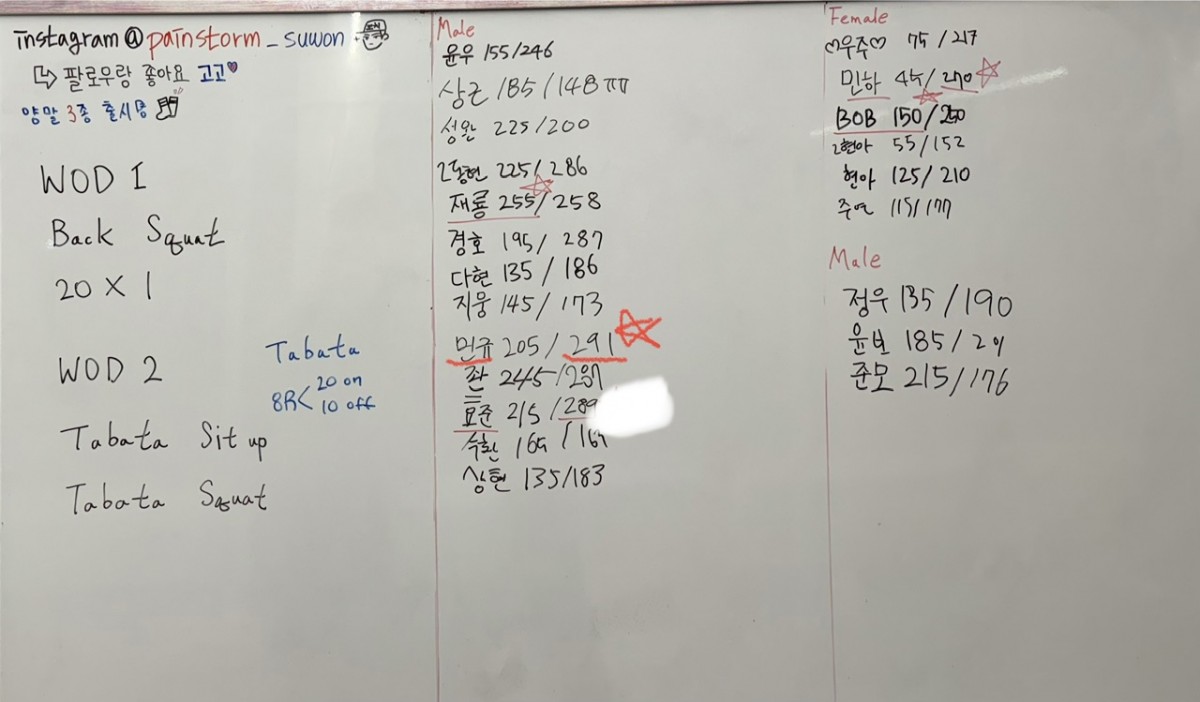 instagram@painstorm_suwon
팔로우랑 좋아요 고고
양말 3종 출시중
WOD 1
Back Squat
20 X 1
WOD 2
Tabata
8R< 20 on
10 off
Tabata Sit up
Tabata Squat
Male
윤우 155/246
상근 185/148 ㅠㅠ
성완 225/200
2동현 225/286
재룡 255/258
경호 195/287
다현 135/186
지웅 145/173
민규 205/291
좐 245/287
효준 215/289
수환 165/165
상현 135/183
Female
♡우주♡ 75/217
민하 45/270
BOB 150/250
2현아 55/152
현아 125/210
주연 115/177
Male
정우 135/190
윤보 185/
준모 215/176